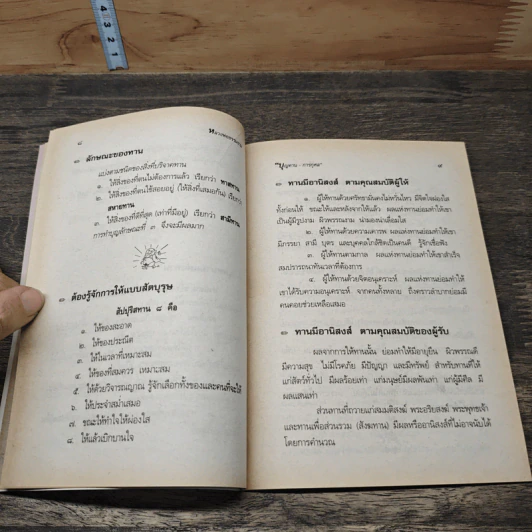 ๘
๑ ลักษณะของทาน
แบ่งตามชนิดของสิ่งที่บริจาคทาน
๑. ให้สิ่งของที่ตนไม่ต้องการแล้ว เรียกว่า ทาสทาน
๒. ให้สิ่งของที่ตนใช้สอยอยู่ (ให้สิ่งที่เสมอกัน) เรียกว่า
สหายทาน
๓. ให้สิ่งของที่ดีที่สุด (เท่าที่มีอยู่) เรียกว่า สามีทาน
การทำบุญลักษณะที่ ๓ จึงจะมีผลมาก
๑ ต้องรู้จักการให้แบบสัตบุรุษ
สัปปุริสทาน ๘ คือ
๑. ให้ของสะอาด
๒. ให้ของประณีต
๓. ให้ในเวลาที่เหมาะสม
๔. ให้ของที่สมควร เหมาะสม
๕. ให้ด้วยวิจารณญาณ รู้จักเลือกทั้งของและคนที่จะให้
๖. ให้ประจำสม่ำเสมอ
๗. ขณะให้ทำใจให้ผ่องใส
๘. ให้แล้วเบิกบานใจ
๙
๑ ทานมีอานิสงส์ ตามคุณสมบัติผู้ให้
๑. ผู้ให้ทานด้วยศรัทธามั่นคงไม่หวั่นไหว มีจิตใจผ่องใส
ทั้งก่อนให้ ขณะให้และหลังจากให้แล้ว ผลแห่งทานย่อมทำให้เขา
เป็นผู้มีรูปงาม ผิวพรรณงาม น่ามองน่าเลื่อมใส
๒. ผู้ให้ทานด้วยความเคารพ ผลแห่งทานย่อมทำให้เขา
มีภรรยา สามี บุตร และบุคคลใกล้ชิดเป็นคนดี รู้จักเชื่อฟัง
๓. ผู้ให้ทานตามกาล ผลแห่งทานย่อมทำให้เขาสำเร็จ
สมปรารถนาทันเวลาที่ต้องการ
๔. ผู้ให้ทานด้วยจิตอนุเคราะห์ ผลแห่งทานย่อมทำให้
เขาได้รับความอนุเคราะห์ จากคนทั้งหลาย ถึงคราวลำบากย่อมมี
คนคอยช่วยเหลือเสมอ
๑ ทานมีอานิสงส์ ตามคุณสมบัติของผู้รับ
ผลจากการให้ทานนั้น ย่อมทำให้มีอายุยืน ผิวพรรณดี
มีความสุข ไม่มีโรคภัย มีปัญญา และมีทรัพย์ สำหรับทานที่ให้
แก่สัตว์ทั่วไป มีผลร้อยเท่า แก่มนุษย์มีผลพันเท่า แก่ผู้มีศีล มี
ผลแสนเท่า
ส่วนทานที่ถวายแก่สมมติสงฆ์ พระอริยสงฆ์ พระพุทธเจ้า
และทานเพื่อส่วนรวม (สังฆทาน) มีผลหรืออานิสงส์ที่ไม่อาจนับได้
โดยการคำนวณ
4
3
2
1